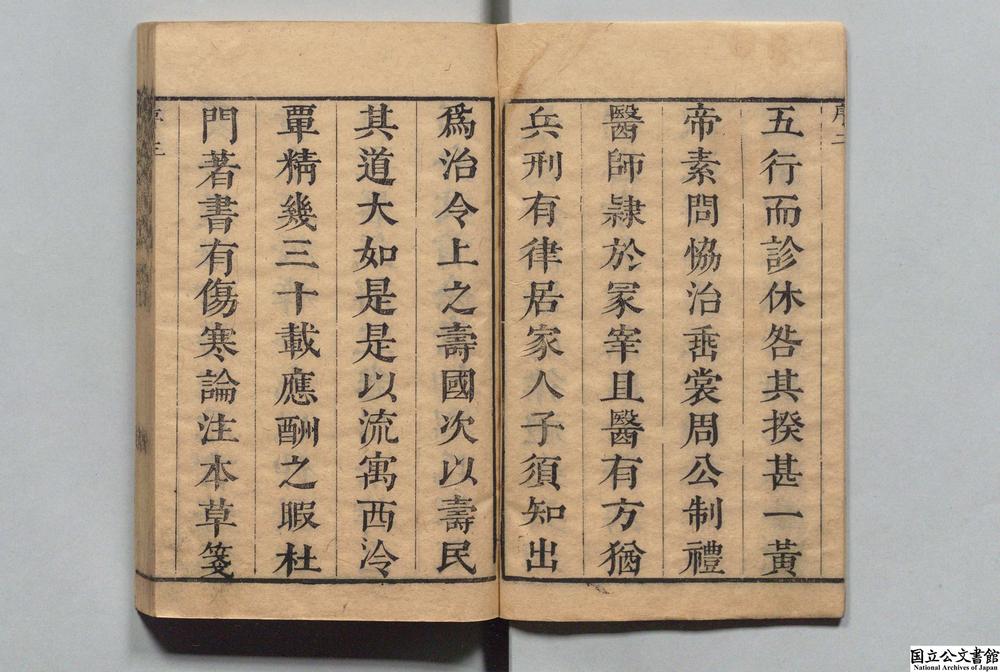 序二
五行而診休咎其揆甚一黃
帝素問恊治垂裳周公制禮
醫師隷於冡宰且醫有方猶
兵刑有律居家人子須知出
爲治令上之壽國次以壽民
其道大如是是以流寓西泠
覃精幾三十載應酬之暇杜
門著書有傷寒論注本草箋
国立公文書館
National Archives of Japan